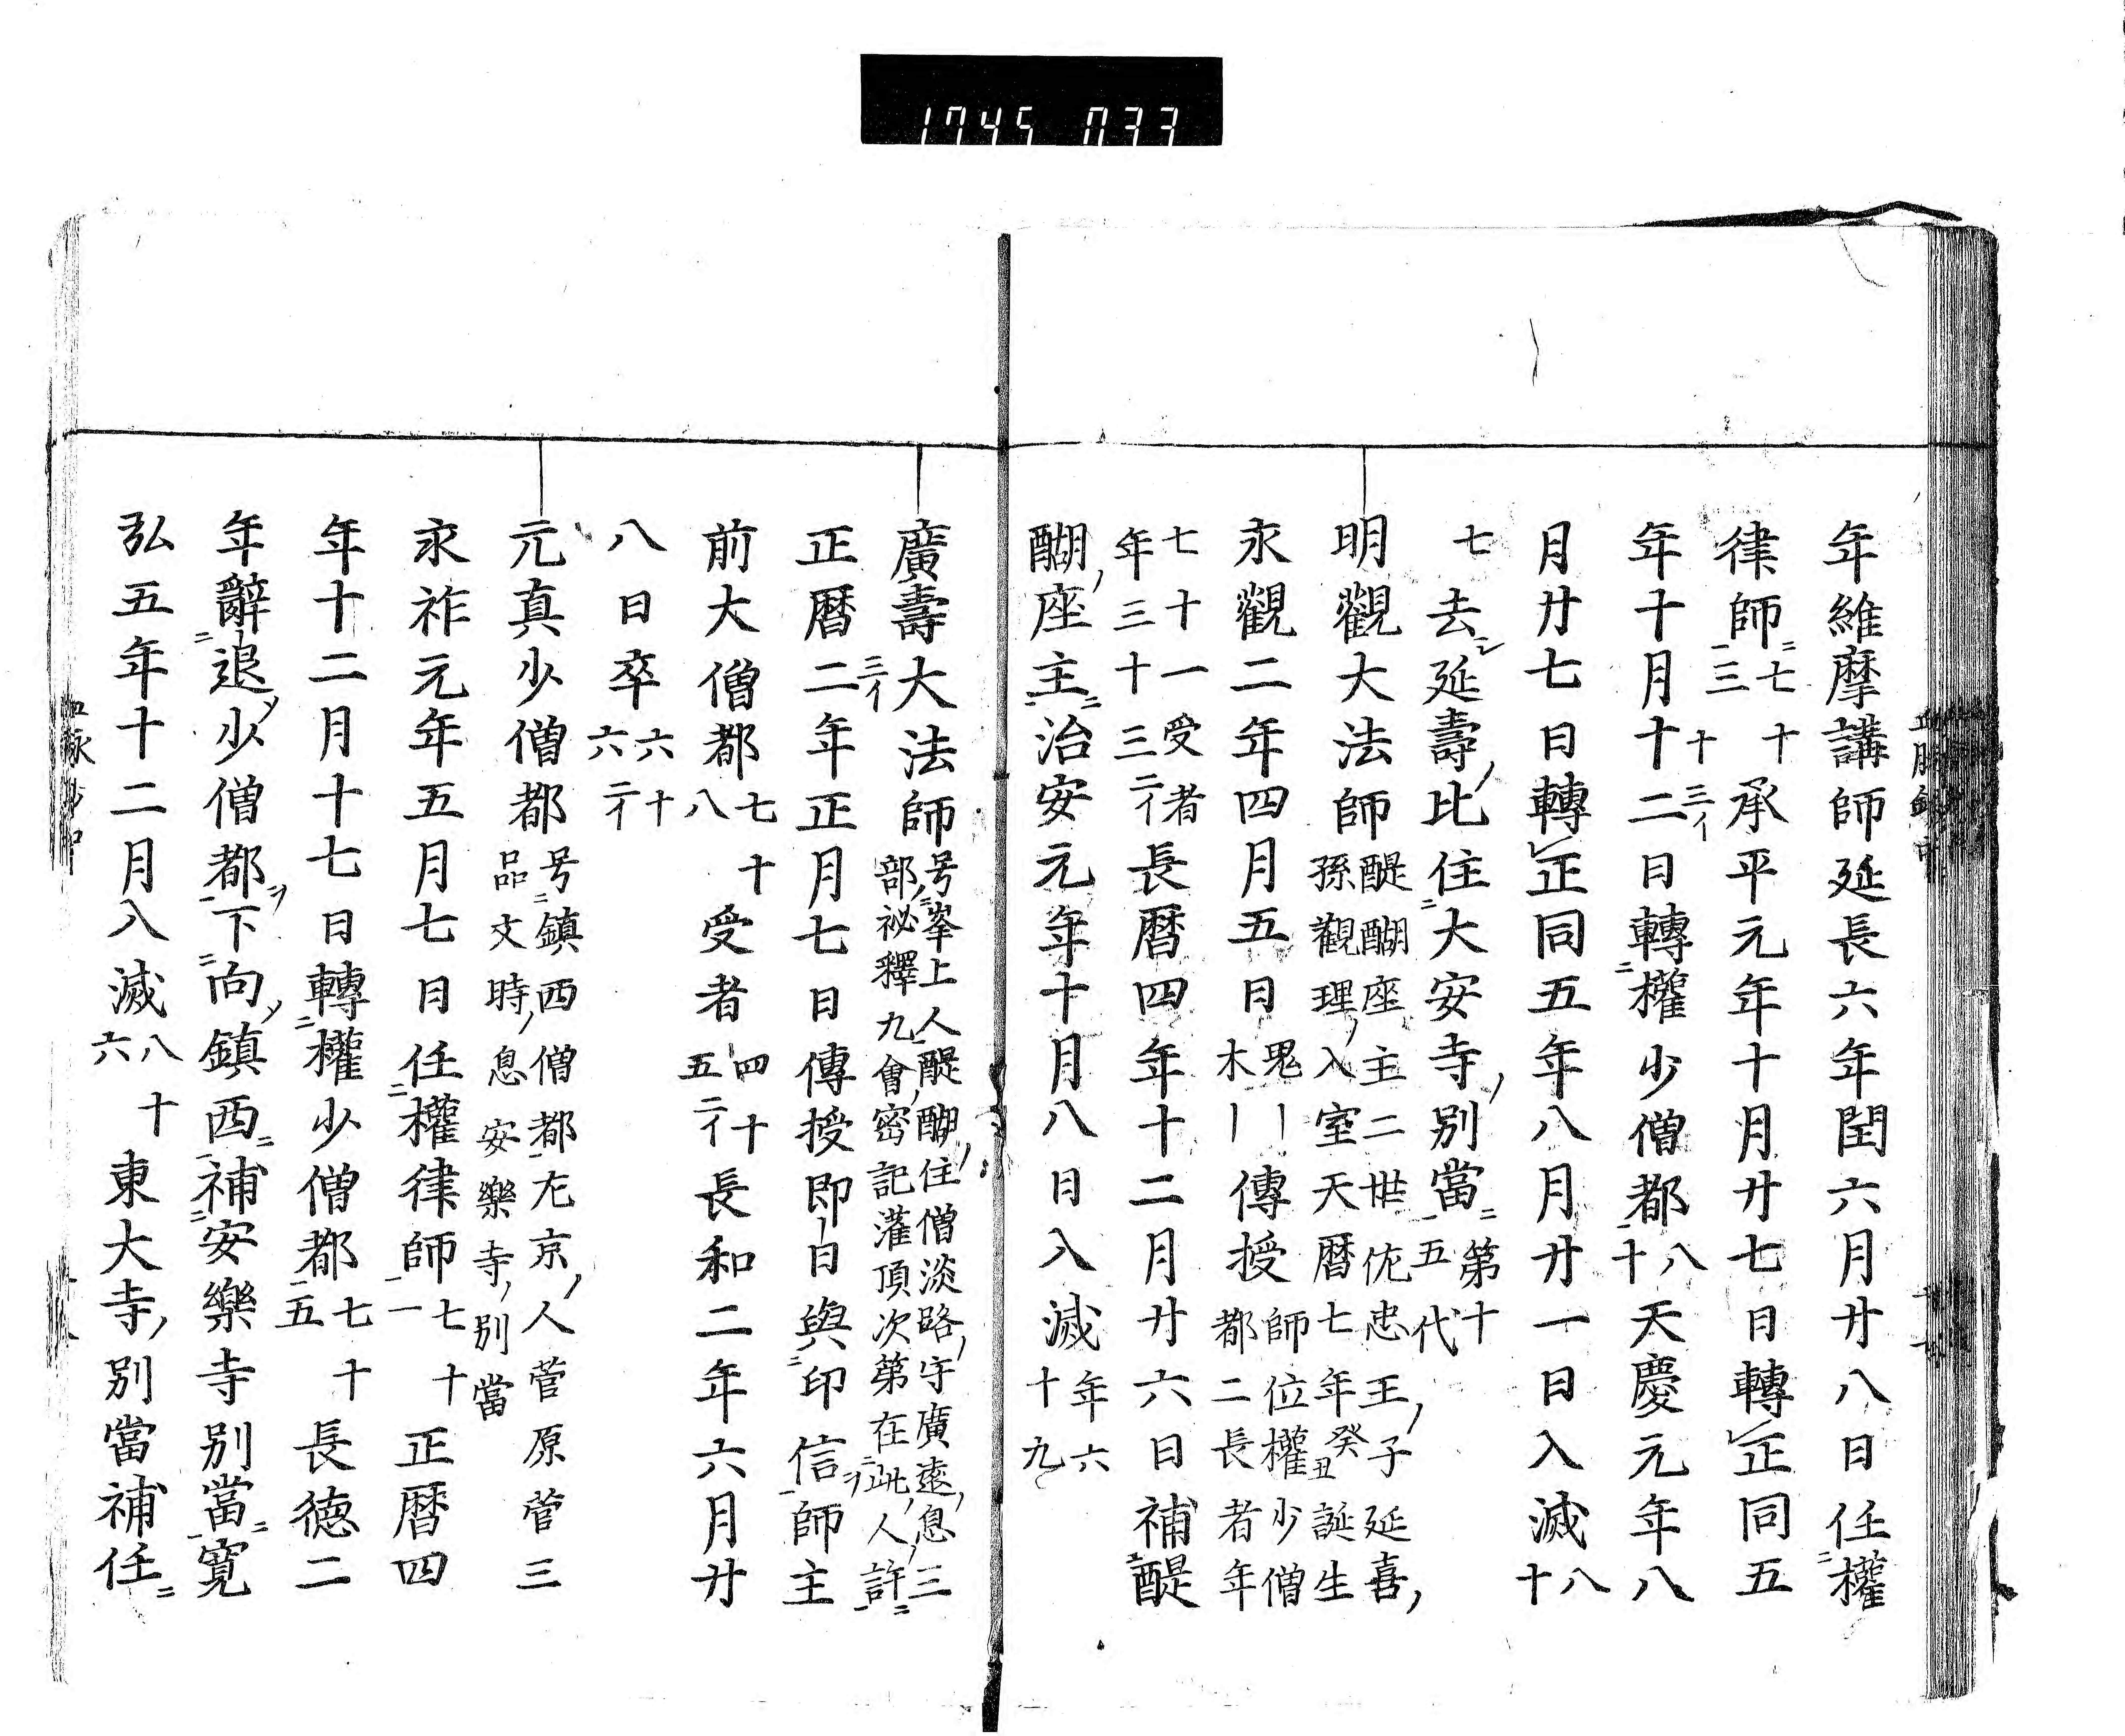 1745 033
年維摩講師延長六年閏六月廿八日任権
律師七十三承平元年十月廿七日轉正同五
年十月十二三イ日轉權少僧都八十天慶元年八
月廿七日轉正同五年八月廿一日入滅八十
七去延壽比住大安寺別當第十五代
明觀大法師醍醐座主二世佐忠王子延喜孫觀理入室天暦七年癸丑誕生
永觀二年四月五日鬼木ーー傳授師位權少僧都二長者年
七十一受者年三十三二イ長暦四年十二月廿六日補醍
醐座主治安元年十月八日入滅年六十九
廣壽大法師号峯上人醍醐住僧淡路守廣遠息三部祕釋九會密記灌頂次第在此人許
正暦二三イ年正月七日傳授即日與印信師主
前大僧都七十八受者四十五二イ長和二年六月廿
八日卒六十六二イ
元真少僧都号鎮西僧都左京人菅原菅三品文時息安樂寺別當
永祚元年五月七日任權律師七十一正暦四
年十二月十七日轉權少僧都七十五長徳二
年辭退少僧都下向鎮西補安樂寺別當寛
弘五年十二月八滅八十六東大寺別當補任